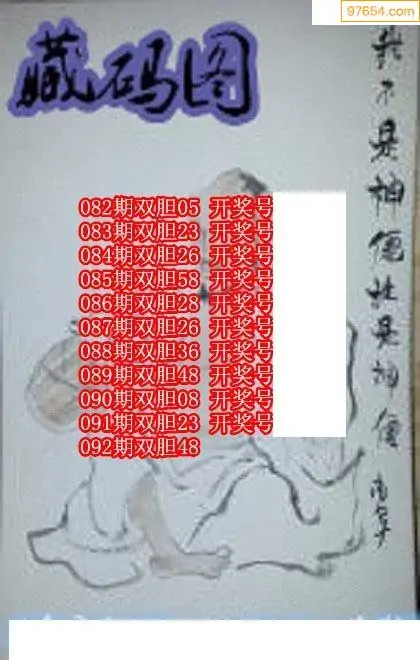 97654.com
藏码图
082期双胆05 开奖号
083期双胆23 开奖号
084期双胆26 开奖号
085期双胆58 开奖号
086期双胆28 开奖号
087期双胆26 开奖号
088期双胆36 开奖号
089期双胆48 开奖号
090期双胆08 开奖号
091期双胆23 开奖号
092期双胆48
我不是神便社是神便